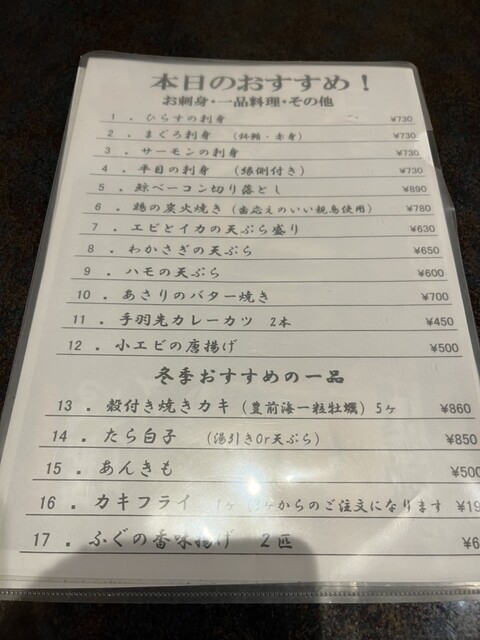 本日のおすすめ！
お刺身・一品料理・その他
1 . ひらすの刺身 ¥730
2 . まぐろ刺身 (鉢鮪・赤身) ¥730
3 . サーモンの刺身 ¥730
4 . 平目の刺身 (縁側付き) ¥730
5 . 鯨ベーコン切り落とし ¥890
6 . 鶏の炭火焼き (歯応えのいい親鳥使用) ¥780
7 . エビとイカの天ぷら盛り ¥630
8 . わかさぎの天ぷら ¥650
9 . ハモの天ぷら ¥600
10 . あさりのバター焼き ¥700
11 . 手羽先カレーカツ 2本 ¥450
12 . 小エビの唐揚げ ¥500
冬季おすすめの一品
13 . 殻付き焼きカキ (豊前海一粒牡蠣) 5ヶ ¥860
14 . たら白子 (湯引きOr天ぷら) ¥850
15 . あんきも ¥500
16 . カキフライ 1ヶ (3ヶからのご注文になります ¥19
17 . ふぐの香味揚げ 2匹 ¥6